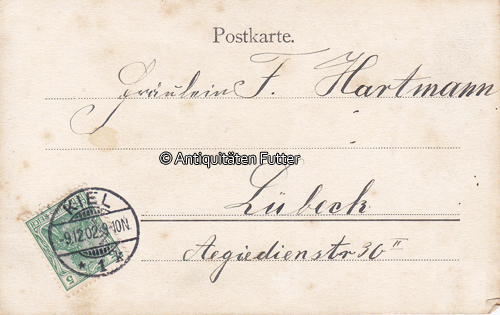 Postkarte.
Fräulein F. Hartmann
© Antiquitäten Futter
Lübeck
Aegiedienstr 30 II
KIEL
9.12.02.9-10N.
* 1 k
5